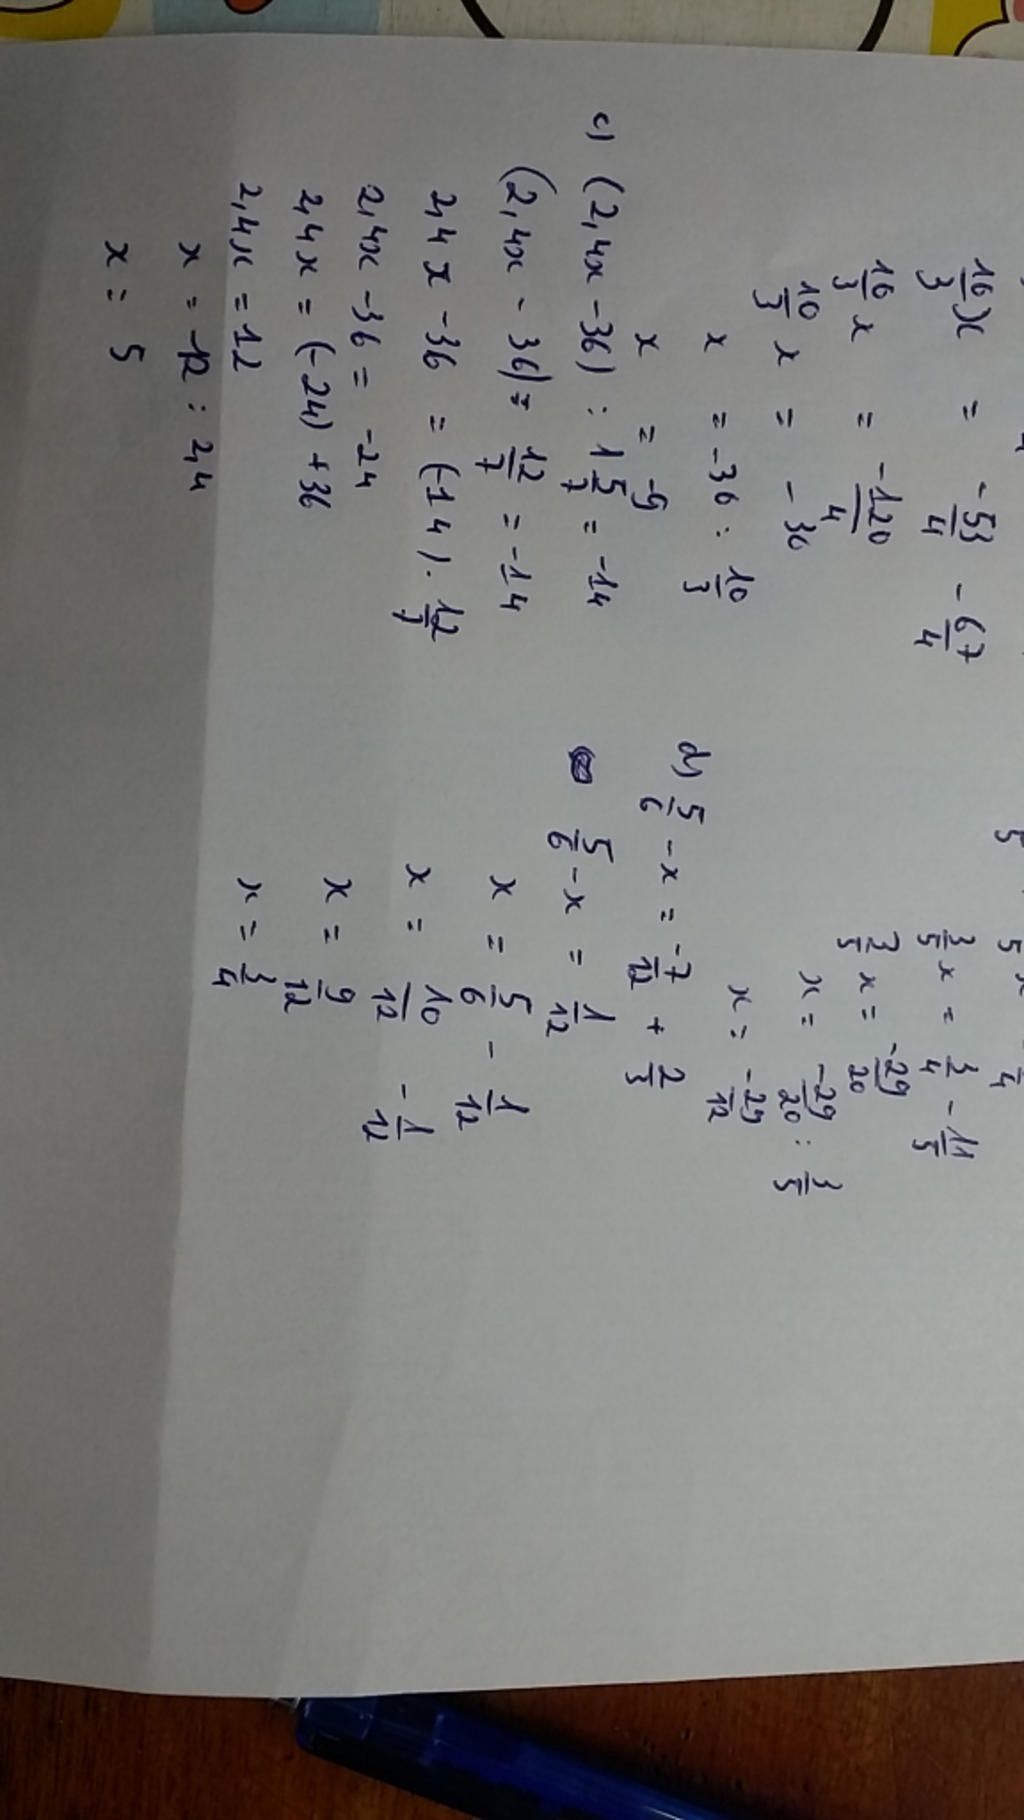 10/3 x = -53/4 - 67/4
10/3 x = -120/4
10/3 x = -30
x = -30 : 10/3
x = -9
c) (2,4x - 36) : 1 5/7 = -14
(2,4x - 36) : 12/7 = -14
2,4x - 36 = (-14) . 12/7
2,4x - 36 = -24
2,4x = (-24) + 36
2,4x = 12
x = 12 : 2,4
x = 5
3/5 x = 3/4 - 11/5
3/5 x = -29/20
x = -29/20 : 3/5
x = -29/12
d) 5/6 - x = -7/12 + 2/3
5/6 - x = 1/12
x = 5/6 - 1/12
x = 10/12 - 1/12
x = 9/12
x = 3/4